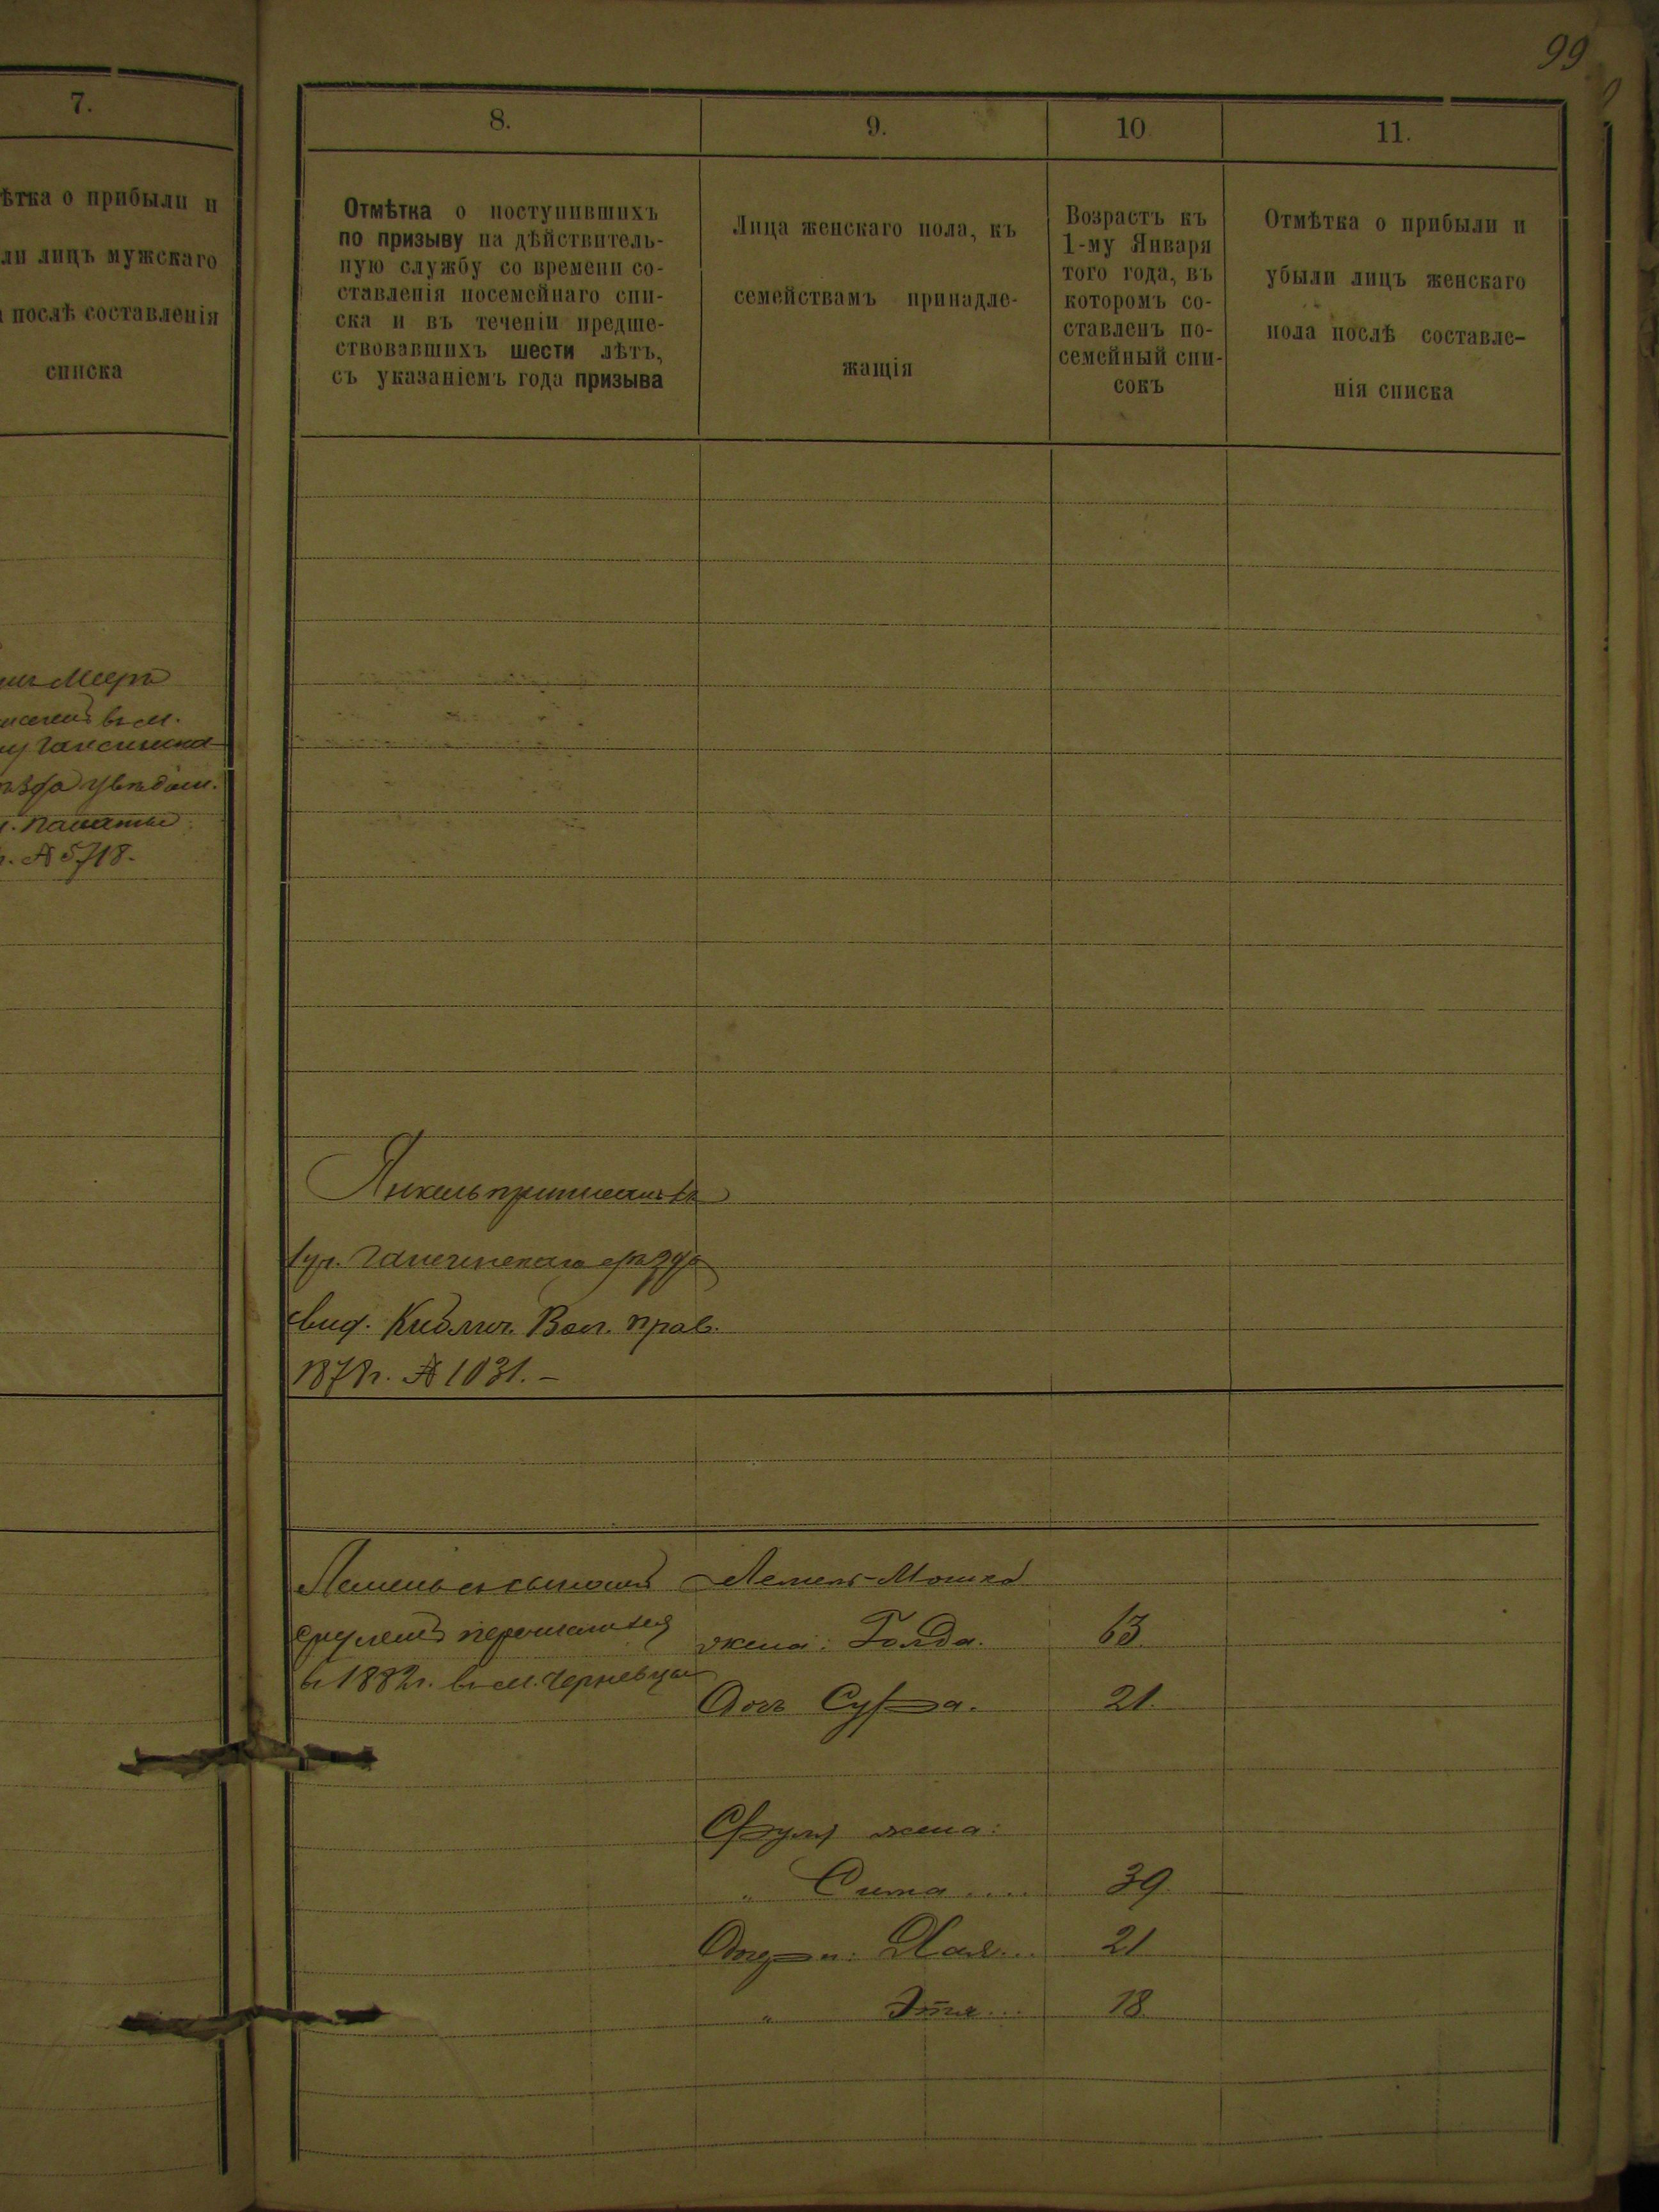 99
7.
ѣтка о прибыли и
ли лицъ мужскаго
послѣ составленія
списка
Мееръ
въ м.
Гайсинска
ѣзда увѣдом.
Палаты
г. № 5718.
8.
Отмѣтка о поступившихъ
по призыву на дѣйствитель-
ную службу со времени со-
ставленія посемейнаго спи-
ска и въ теченіи предше-
ствовавшихъ шести лѣтъ,
съ указаніемъ года призыва
9.
Лица женскаго пола, къ
семействамъ принадле-
жащія
10
Возрастъ къ
1-му Января
того года, въ
которомъ со-
ставленъ по-
семейный спи-
сокъ
11.
Отмѣтка о прибыли и
убыли лицъ женскаго
пола послѣ составле-
нія списка
Янкель приписанъ въ
уѣзда
свид. Вол. Прав.
1878 г. № 1031. –
Лемель съ сыномъ
Срулемъ перечислился
въ 1882 г. въ м. Черневцы
Лемель-Мошка
жена: Голда. 63.
Дочь Сура. 21.
Сруля жена:
" Сима .... 39.
Дочери: Хая... 21
" Этя... 18.